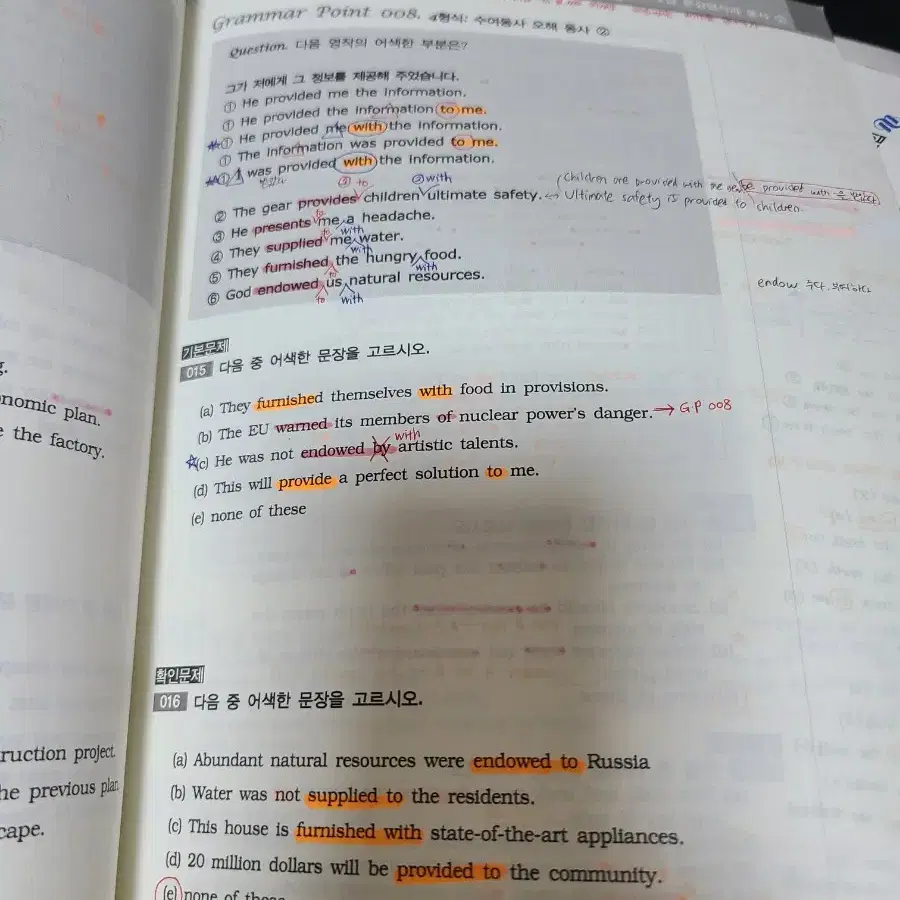 Grammar Point 008. 4형식: 수여동사 오해 동사 ②
Question. 다음 영작의 어색한 부분은?
그가 저에게 그 정보를 제공해 주었습니다.
① He provided me the information.
① He provided the information to me.
① He provided me with the information.
① The information was provided to me.
① I was provided with the information.
③ to ② with
② The gear provides children ultimate safety. ↔ Ultimate safety is provided to children.
(Children are provided with
be provided with
③ He presents me a headache.
to with
④ They supplied me water.
to with
⑤ They furnished the hungry food.
to with
⑥ God endowed us natural resources.
to with
endow 주다.
기본문제
015 다음 중 어색한 문장을 고르시오.
(a) They furnished themselves with food in provisions.
(b) The EU warned its members of nuclear power's danger. → G.P 008
with
(c) He was not endowed by artistic talents.
(d) This will provide a perfect solution to me.
(e) none of these
확인문제
016 다음 중 어색한 문장을 고르시오.
(a) Abundant natural resources were endowed to Russia
(b) Water was not supplied to the residents.
(c) This house is furnished with state-of-the-art appliances.
(d) 20 million dollars will be provided to the community.
(e) none of these
nomic plan.
the factory.
ruction project.
he previous plan
cape.